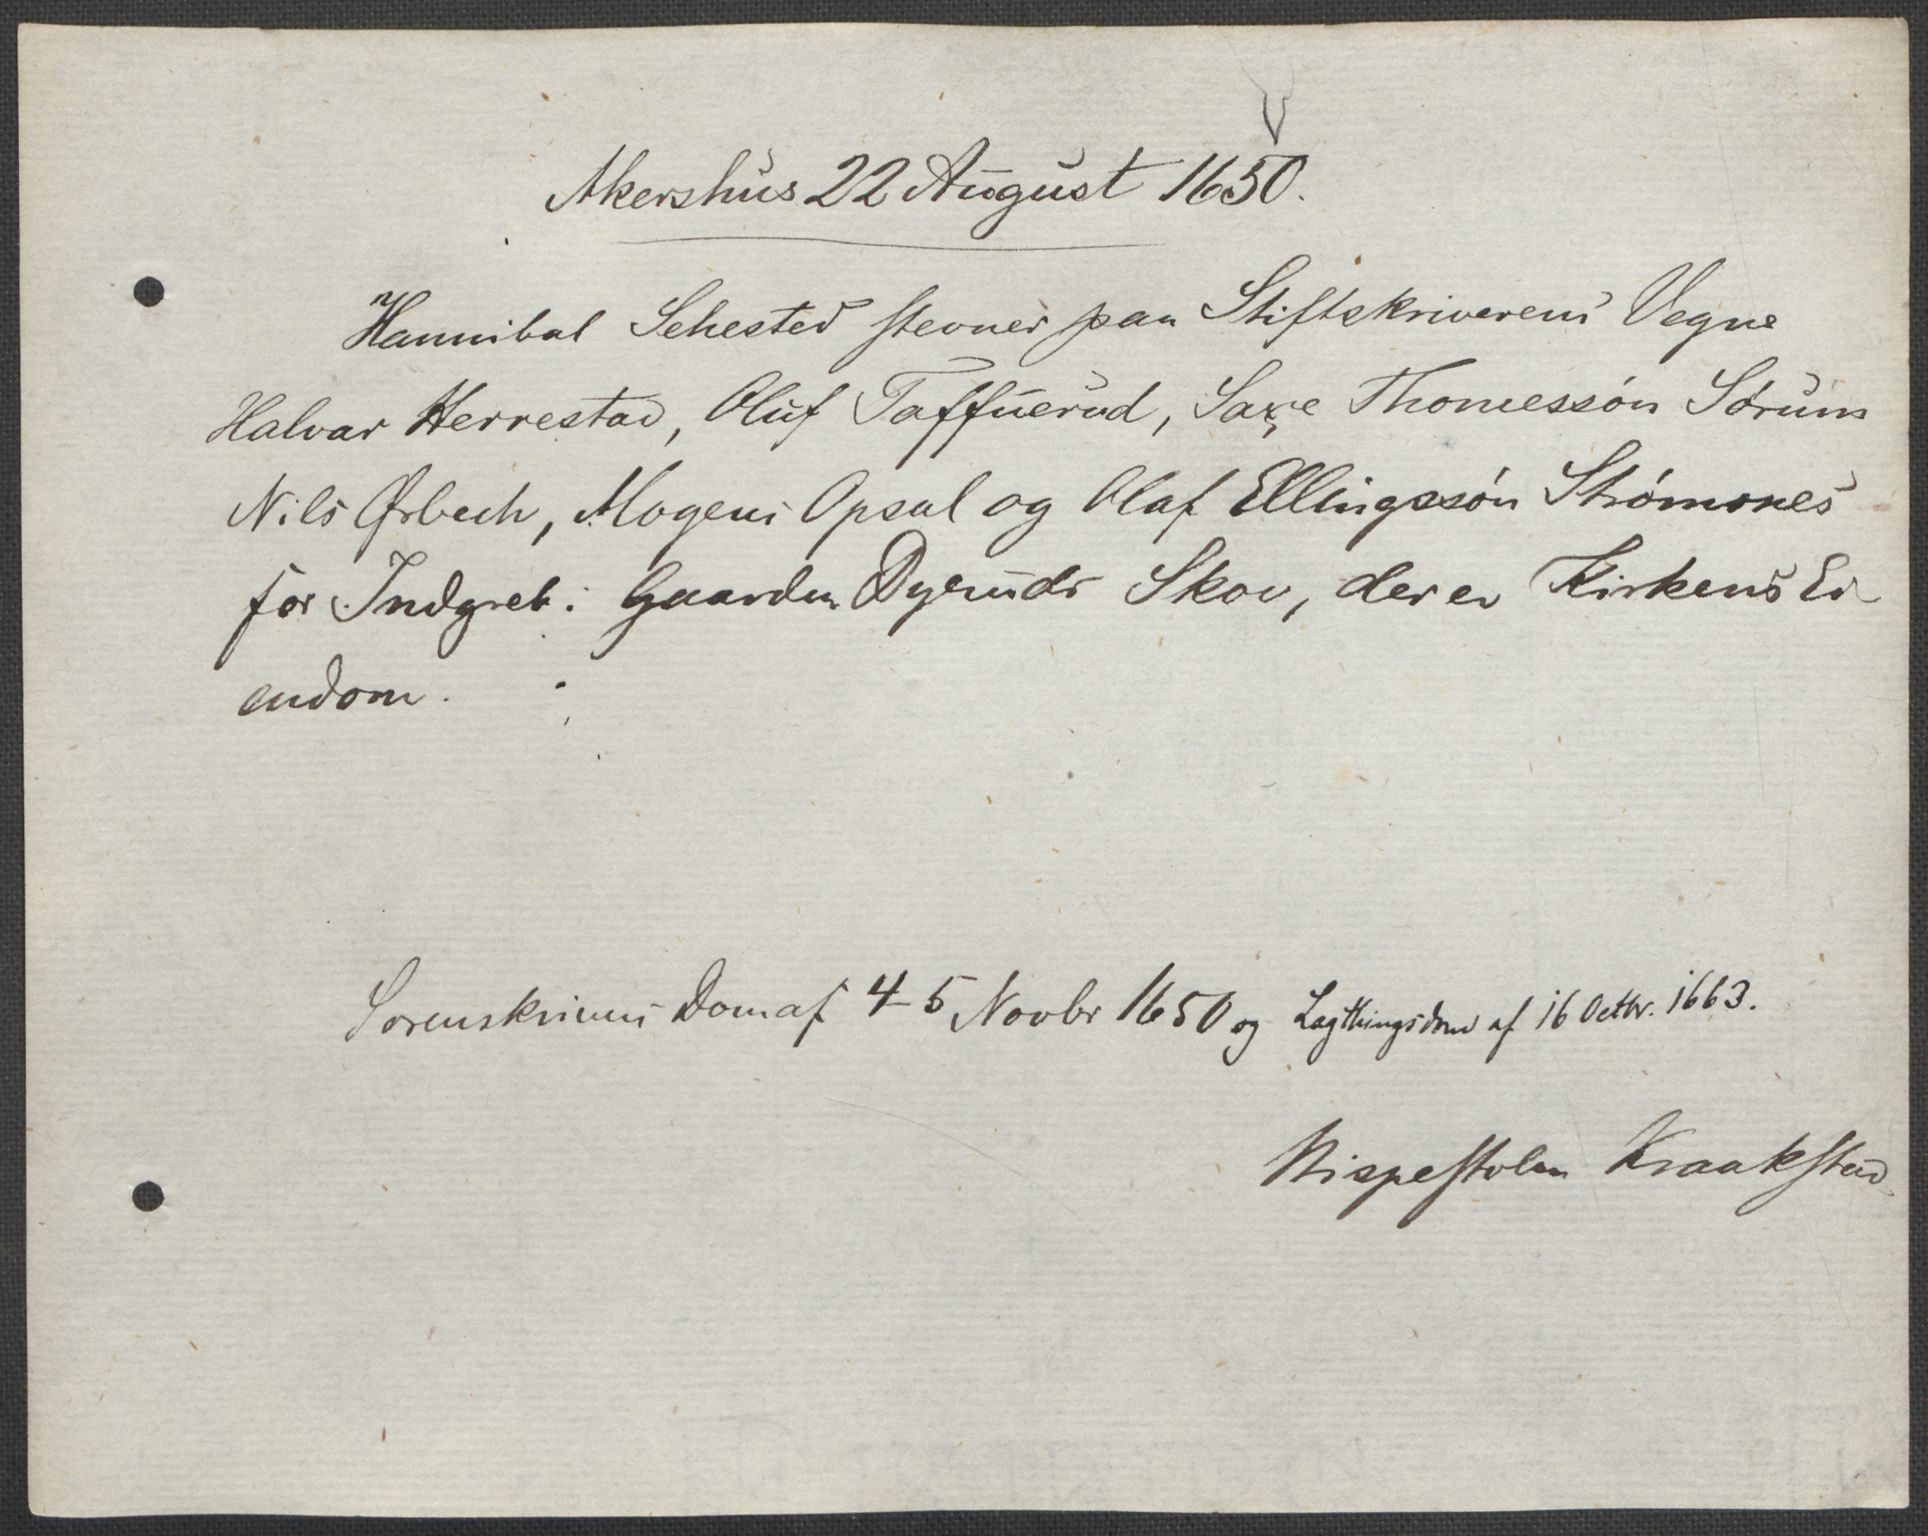 Akershus 22 August 1650.
Hannibal Sehested stevner paa Stiftskriverens Vegne
Halvar Herrestad, Oluf Taffuerud, Saxe Thomessón Sórum
Nils Ørbech, Mogens Opsal og Olaf Ellingssón Strómsnes
for Indgreb i Gaarden Dyruds Skov, der er Kirkens Ei
endom.
Sorenskrivers Dom af 4-5 Novbr 1650 og Lagthingsdom af 16 Octbr. 1663.
Kraakstad